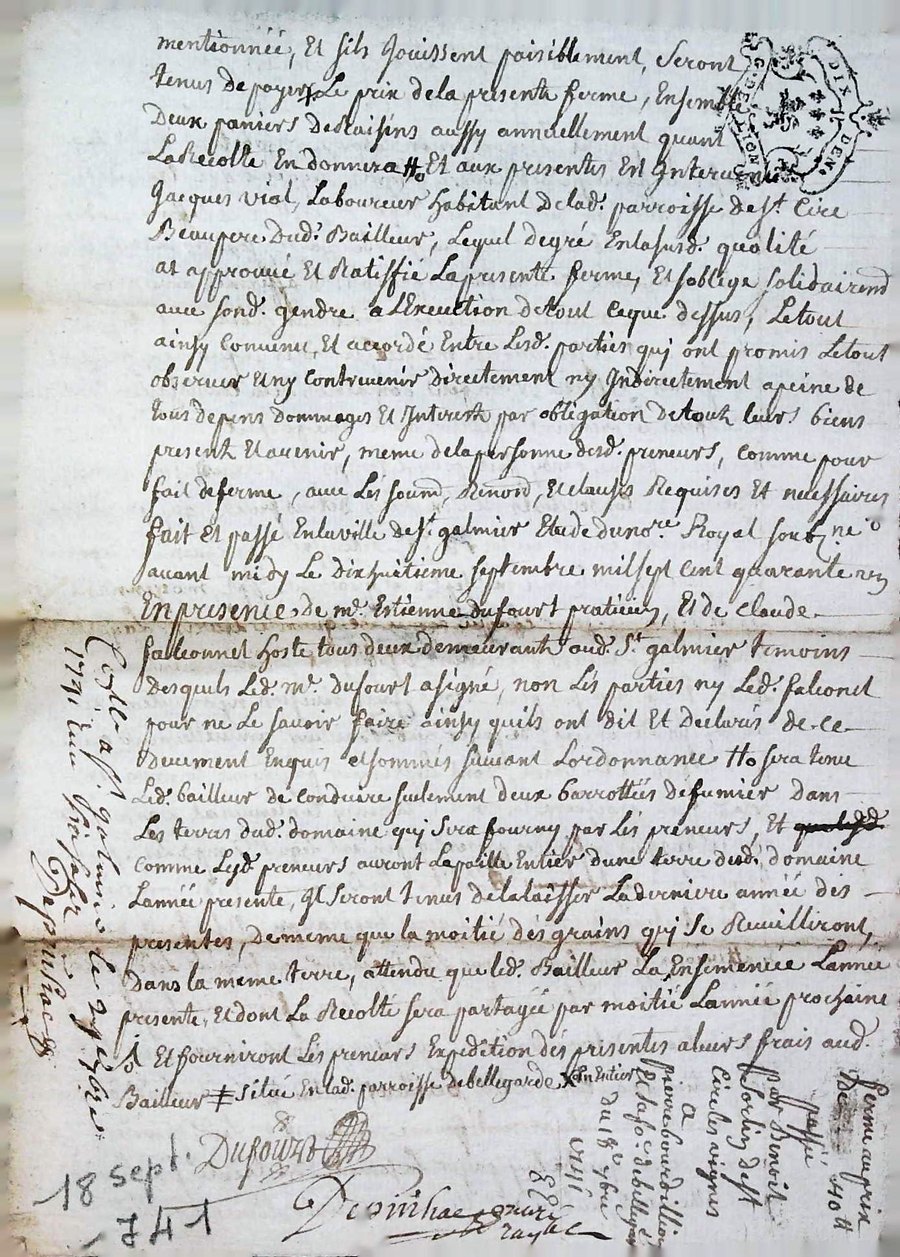 mentionnée, Et sils Jouissent paisiblement, Seront
tenus de payer Le prix dela presente ferme, Ensemble
Deux paniers de Raisins aussy annuellement quant
La Recolte En donnera Et aux presentes Est Intervenu
Jacques vial, Laboureur habitant de lad. parroisse de st. Cire
Beaupere dud. Bailleur, Lequel de gré En lasusd. qualité
at approuvé Et Ratiffié La presente ferme, Et soblege solidairemt
avec sond. gendre a LExecution de tout Ceque dessus, Le tout
ainsy Convenu, Et accordé Entre Lesd. parties qui ont promis Letout
observer Et ny Contrevenir directement ny Indirectement apeine de
tous depens dommages Et Interests par obligation de touts leurs biens
present Et avenir, meme dela personne desd. preneurs, comme pour
fait de ferme, avec Les soumd, Renond, Et clauses Requises Et necessaires
fait Et passé En laville de st. galmier Etude du nore. Royal
avant midy Le dixhuitieme septembre mil sept cent quarante un
En presence de mr. Estienne dufourt praticien, Et de Claude
falconnet hoste tous deux demeurants aud. St. galmier temoins
desquels Led. mr. dufourt a signé, non Les parties ny Led. falconet
pour ne Le savoir faire ainsy quils ont dit Et declarés de ce
deuement Enquis et sommés suivant Lordonnance sera tenu
Led. bailleur de conduire seulement deux barrottées de fumier dans
Les terres dud. domaine qui sera fourny par Les preneurs, Et
comme Lesd. preneurs auront La paille Entier dune terre dud. domaine
Lannée presente, Ils seront tenus de la laisser La derniere année des
presentes, de meme que la moitié des grains qui se Recuilliront,
dans la meme terre, attendu que led. Bailleur La Ensemencée Lannée
presente, Et dont La Recolte sera partagée par moitié Lannée prochaine
Et fourniront Les preneurs Expedition des presentes a leurs frais aud.
Bailleur situé En lad. parroisse de bellegarde En Entier
Dufourt
18 sept.
1741
ferme au prix
de 140 tt
passé
par Benoit
de st
Cire les vignes
a
pierre bourdillion
de bellegarde
du 18e 7bre
1741
G. DE LION
DIX DEN.